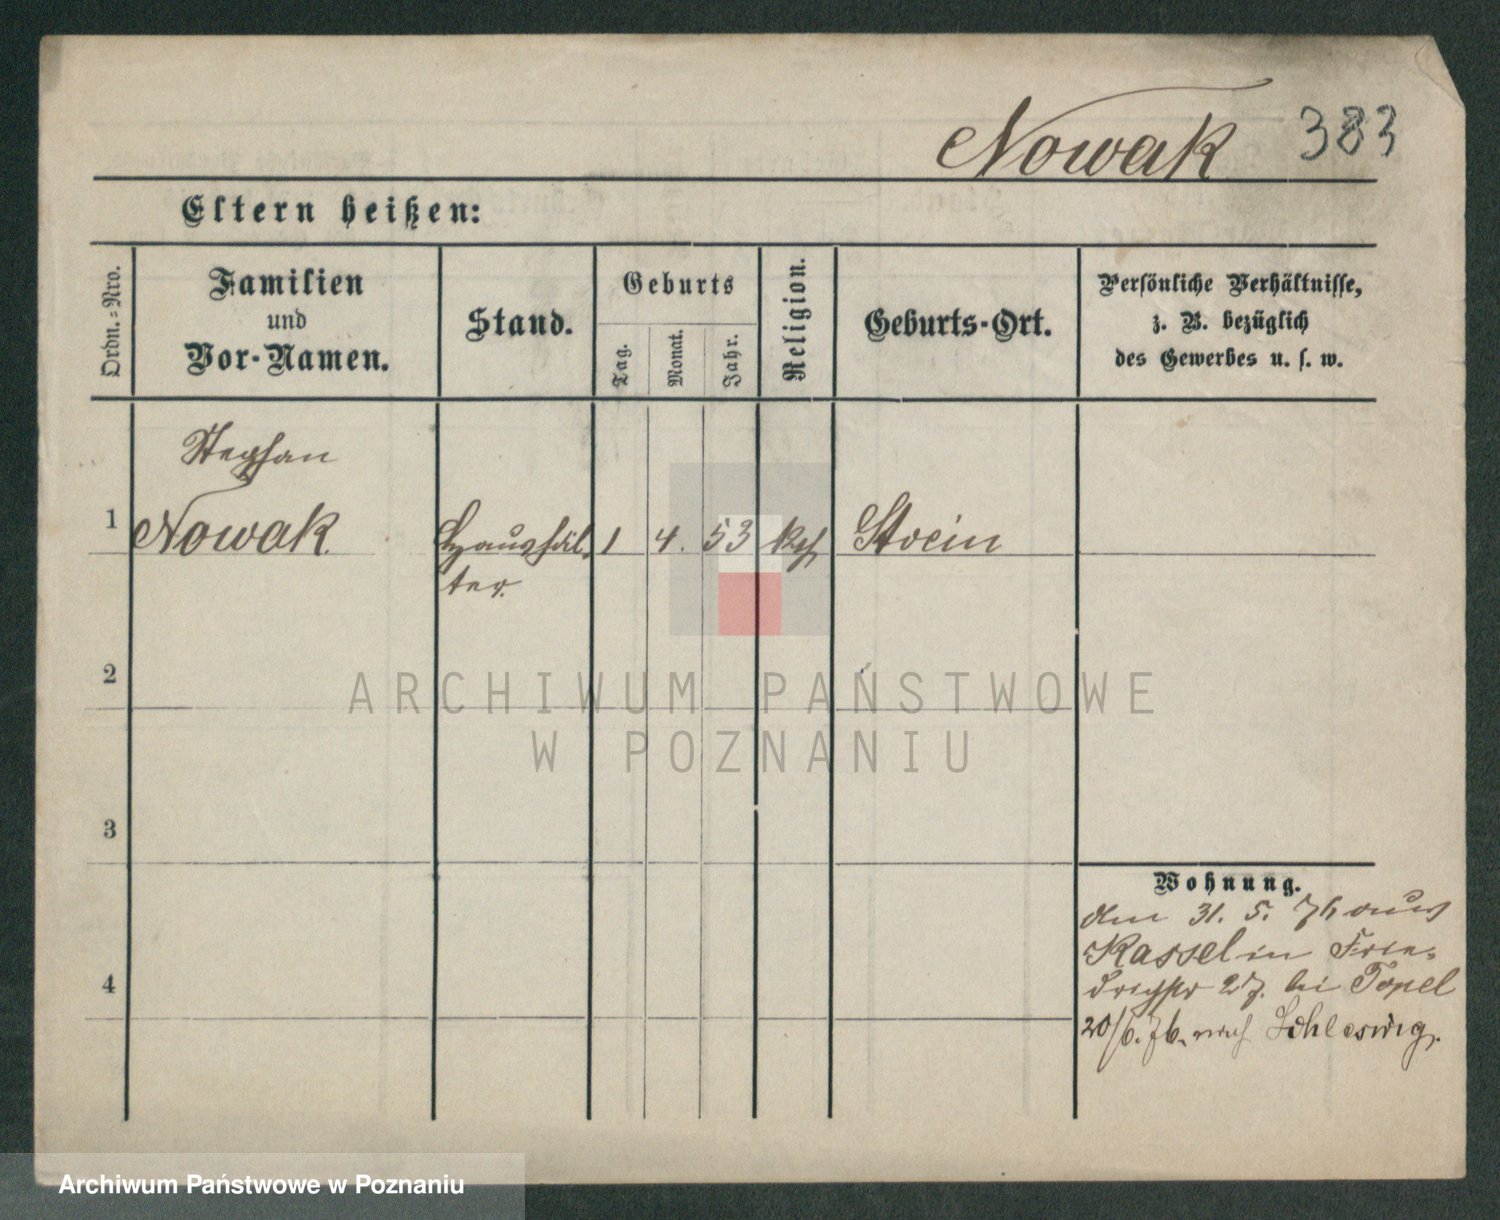 Nowak 383
Eltern heißen:
Ordn.-Nro.
Familien
und
Vor-Namen.
Stand.
Geburts
Tag.
Monat.
Jahr.
Religion.
Geburts-Ort.
Persönliche Verhältnisse,
z. B. bezüglich
des Gewerbes u. s. w.
Stephan
1 Nowak Haushäl- 1 4. 53 kth Strein
ter.
2
3
4
Wohnung.
den 31. 5. 76 aus
Kassel in Frie-
drichstr 27. bei Topel
20/6. 76. nach Schleswig.
ARCHIWUM PAŃSTWOWE
W POZNANIU
Archiwum Państwowe w Poznaniu